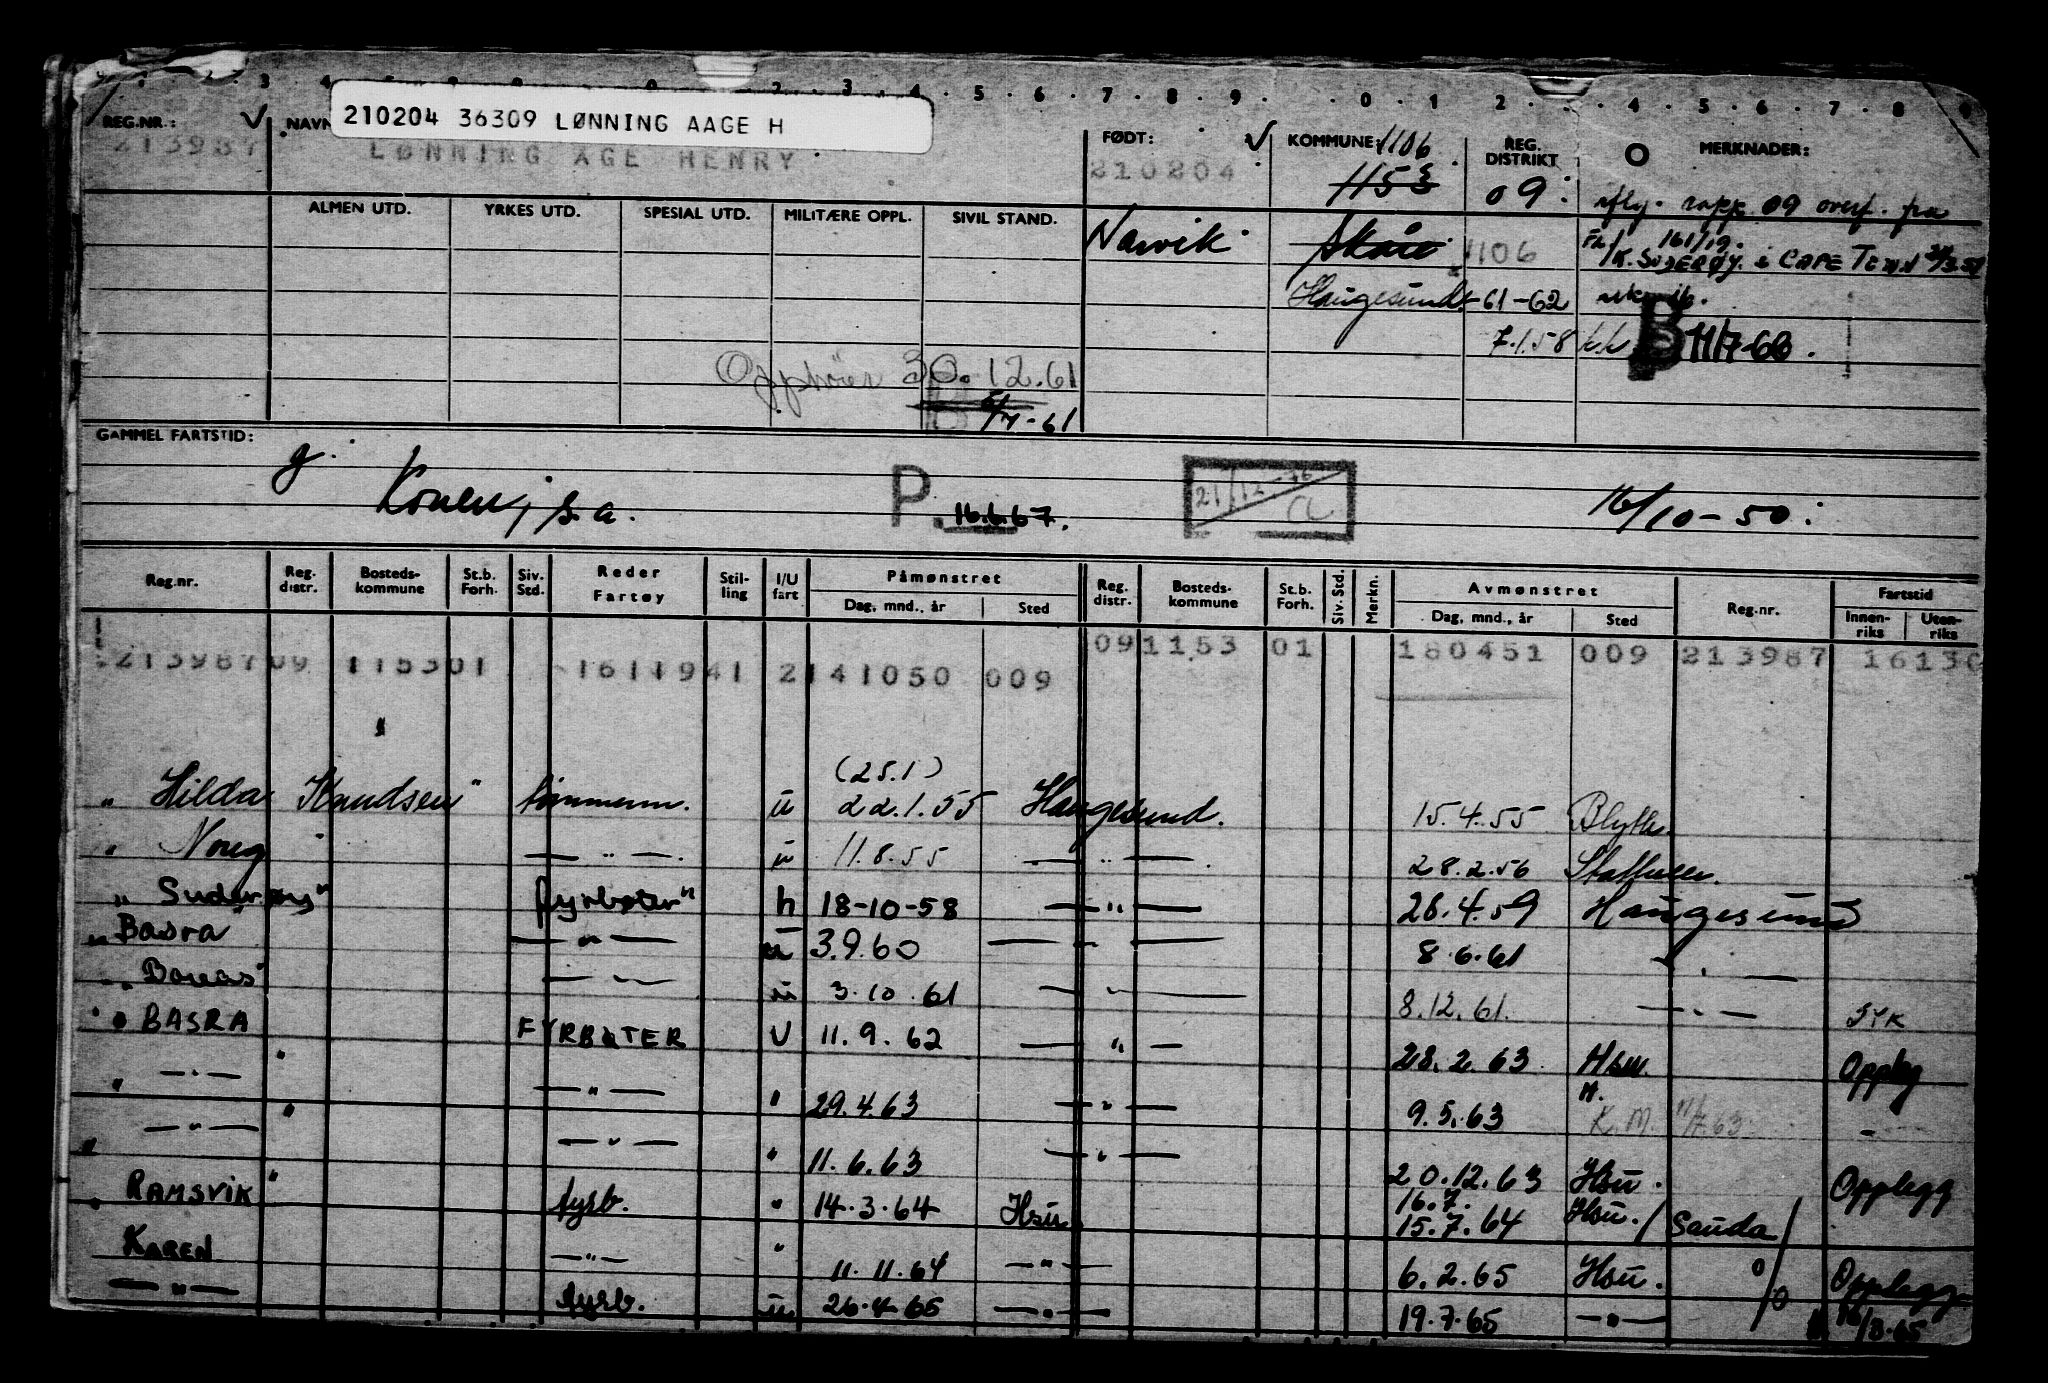 210204 36309 LØNNING AAGE H
REG.NR.: NAVN FØDT: KOMMUNE 1106 REG. DISTRIKT O MERKNADER:
213987 LØNNING AGE HENRY 210204 1153 09
rapp. 09 overf. fra
ALMEN UTD. YRKES UTD. SPESIAL UTD. MILITÆRE OPPL. SIVIL STAND. Narvik Skåre 1106
161/19.
K. SUDERØY. i CAPE TOWN
Haugesund 61-62
7.1.58 B 11/7-66.
Opphører 30.12.61
/7-61
GAMMEL FARTSTID:
g.
P. 16.6.67. 16/10-50.
Reg.nr. Reg. distr. Bosteds-kommune St.b. Forh. Siv. Std. Reder Fartøy Stil-ling I/U fart Påmønstret Reg. distr. Bosteds-kommune St.b. Forh. Siv. Std. Merkn. Avmønstret Reg.nr. Fartstid
Dag, mnd., år Sted Dag, mnd., år Sted Innen-riks Uten-riks
213987 09 1153 01 1611941 2 141050 009 09 1153 01 180451 009 213987 16130
(25.1)
" Hilda Knudsen" tømmerm. u 22.1.55 Haugesund. 15.4.55 Blyth.
" Noreg " — " — u 11.8.55 — " — 28.2.56
" Suderøy" fyrbøter" h 18-10-58 — " — 26.4.59 Haugesund
" Basra — " — u 3.9.60 — " — 8.6.61 — " —
" Boreas" — " — u 3.10.61 — " — 8.12.61. — " — SYK
" BASRA FYRBØTER U 11.9.62 — " — 28.2.63 Hsu. Opplegg
" — " — " — " — " 29.4.63 — " — 9.5.63 H. K.M. 11/7.63 -
" — " — " — " — " 11.6.63 — " — 20.12.63 Hsu. Opplegg
" RAMSVIK " fyrb. " 14.3.64 Hsu 16.7. 15.7.64 Hsu. / Sauda /
KAREN — " — " 11.11.64 — " — 6.2.65 Hsu. Opplegg
— " — fyrb. u 26.4.65 — " — 19.7.65 — " — 16/3.65